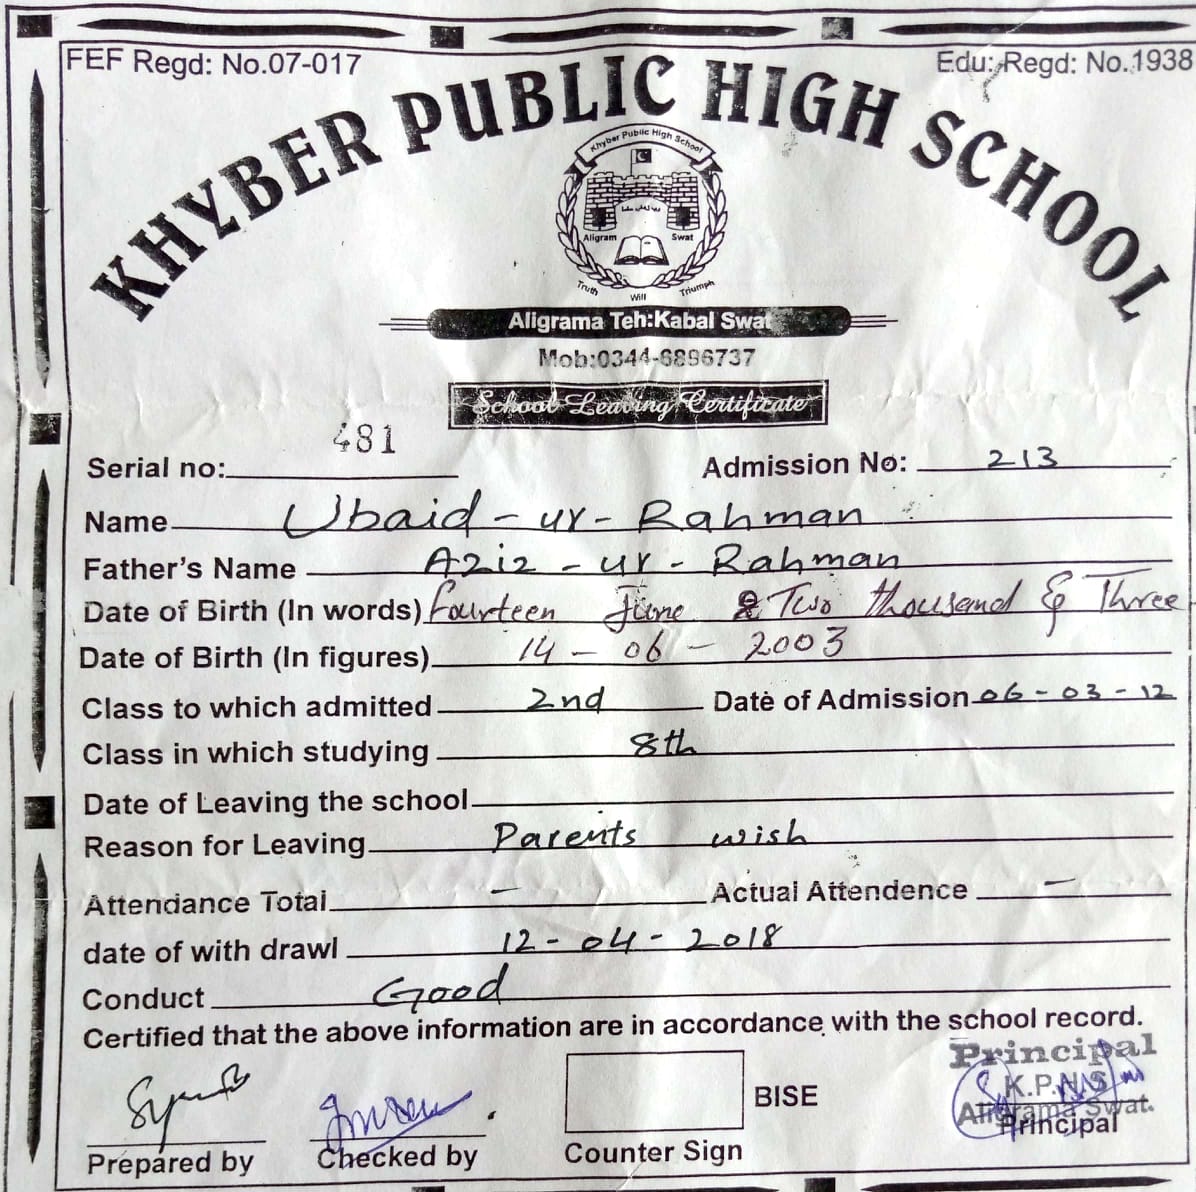 FEF Regd: No.07-017 Edu: Regd: No.1938
KHYBER PUBLIC HIGH SCHOOL
Khyber Public High School
Aligram Swat
Truth Will Triumph
Aligrama Teh:Kabal Swat
Mob:0344-6896737
School Leaving Certificate
Serial no: 481 Admission No: 213
Name Ubaid-ur-Rahman
Father's Name Aziz-ur-Rahman
Date of Birth (In words) Fourteen June Two thousand & Three
Date of Birth (In figures) 14-06-2003
Class to which admitted 2nd Date of Admission 06-03-12
Class in which studying 8th
Date of Leaving the school
Reason for Leaving Parents wish
Attendance Total - Actual Attendence -
date of with drawl 12-04-2018
Conduct Good
Certified that the above information are in accordance with the school record.
Principal
K.P.H.S
Aligrama Swat.
BISE
Prepared by Checked by Counter Sign Principal